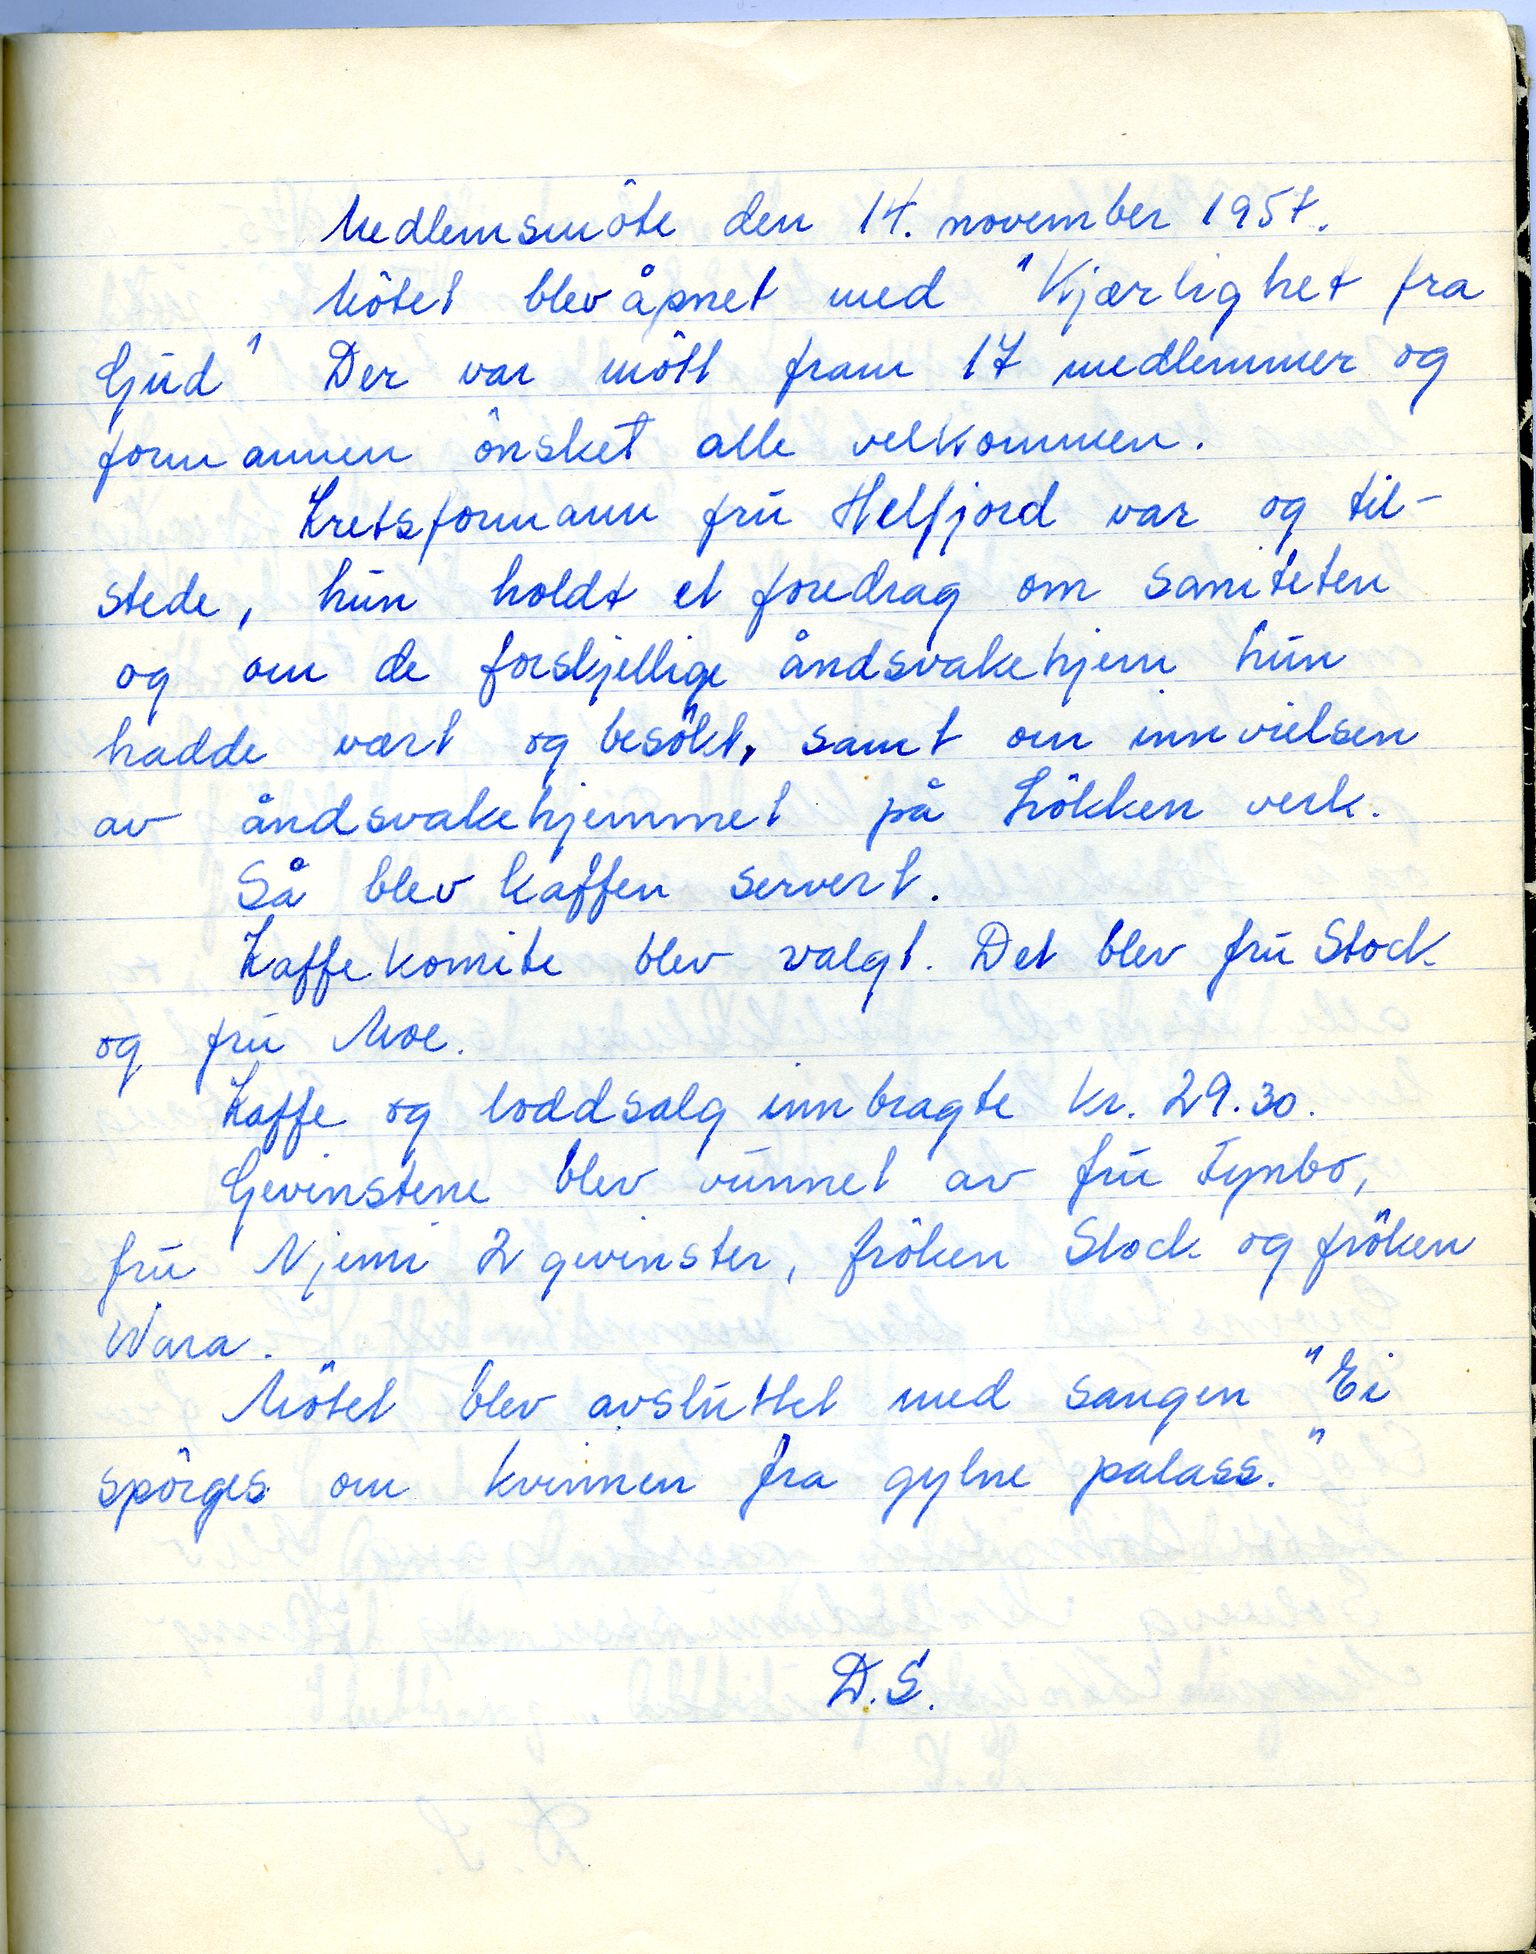 Medlemsmöte den 14. november 1957.
Mötet blev åpnet med "Kjærlighet fra
Gud" Der var mött fram 17 medlemmer og
formannen önsket alle velkommen.
Kretsformann fru Helfjord var og til-
stede, hun holdt et foredrag om saniteten
og om de forskjellige åndsvakehjem hun
hadde vært og besökt, samt om innvielsen
av åndsvakehjemmet på Lökken verk.
Så blev kaffen servert.
Kaffekomite blev valgt. Det blev fru Stock
og fru Moe.
Kaffe og loddsalg innbragte kr. 29.30.
Gevinstene blev vunnet av fru Tynbo,
fru Njemi 2 gevinster, fröken Stock og fröken
Wara.
Mötet blev avsluttet med sangen "Ei
spörges om kvinnen fra gylne palass."
D.S.